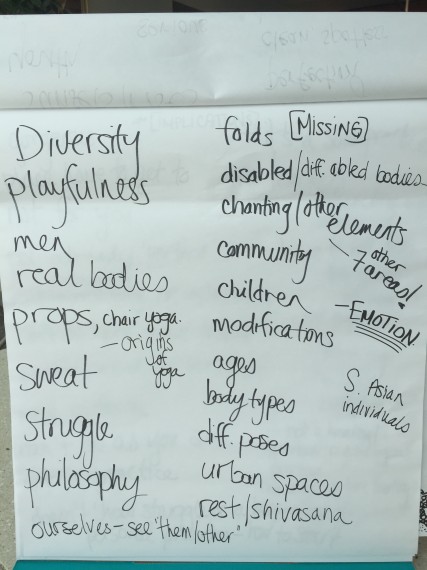 Diversity
playfulness
men
real bodies
props, chair yoga.
- origins
of
yoga
sweat
struggle
philosophy
ourselves - see "them/other"
folds [MISSING]
disabled/diff. abled bodies
chanting/other
elements
- 7 other
areas!
community
children
- EMOTION
modifications
ages
S. Asian
individuals
body types
diff. poses
urban spaces
rest/shivasana